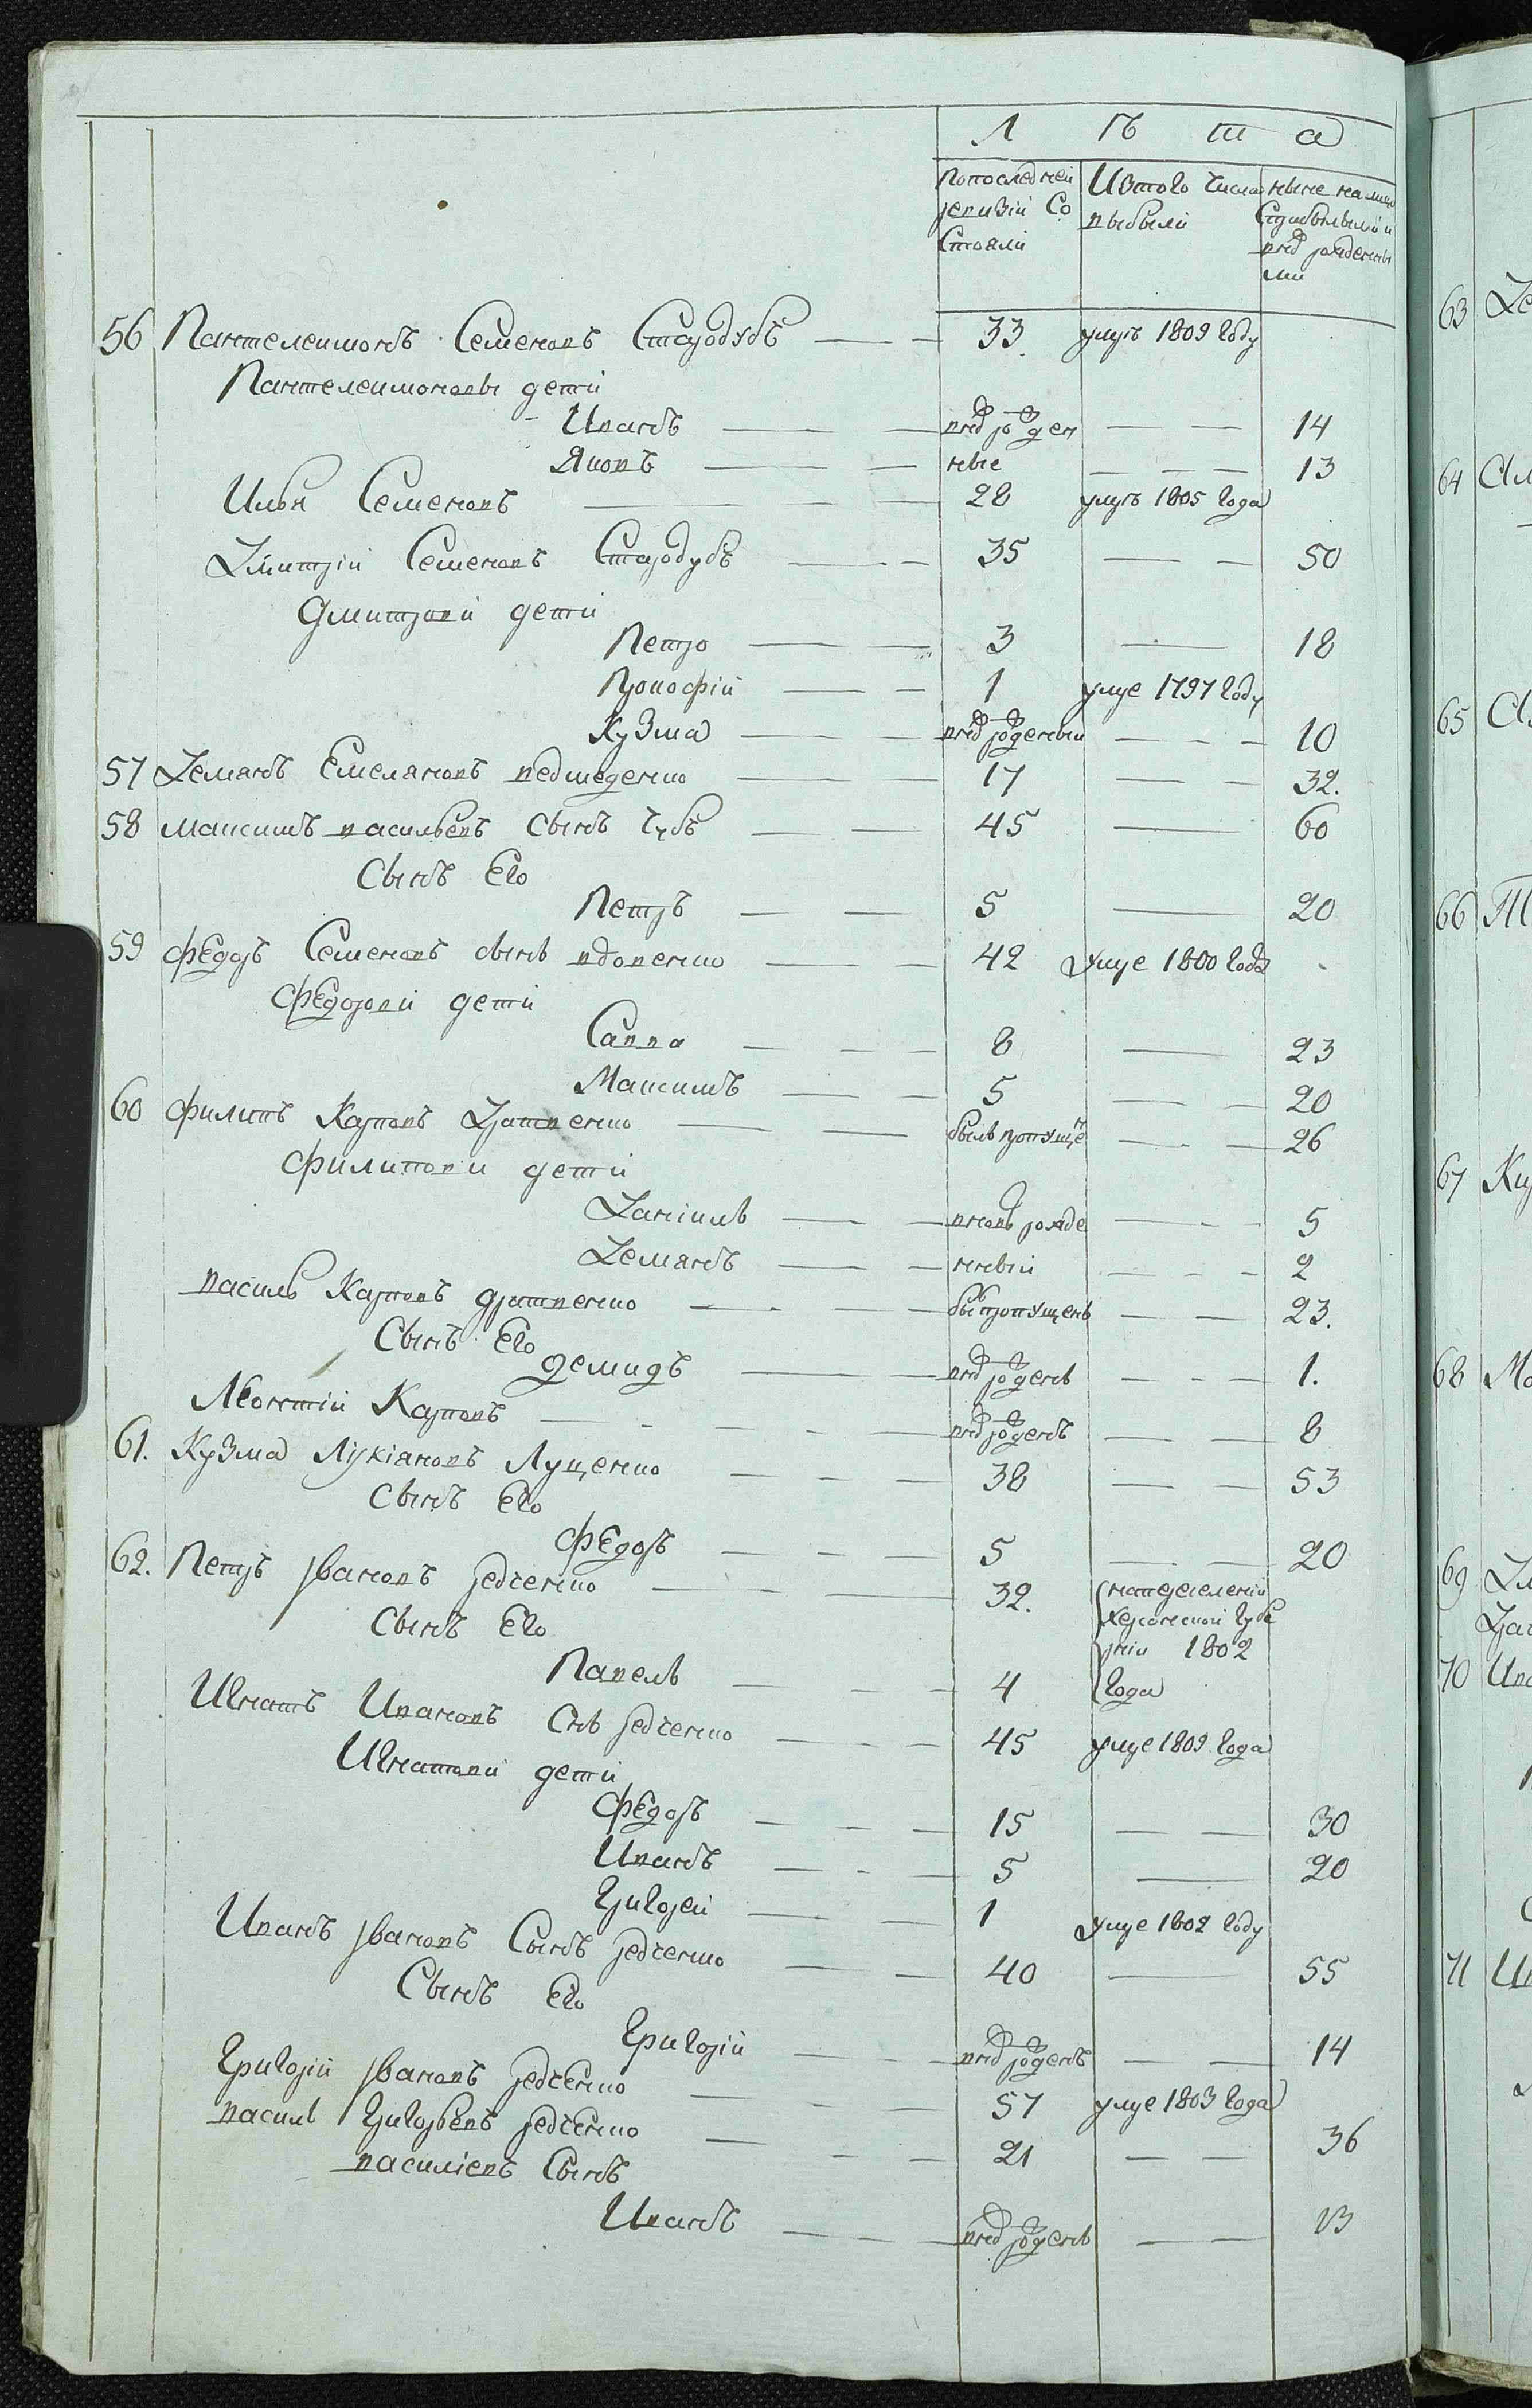 Л ѣ т а
По последней Изтого числа ныне налицо
ревизiи Со выбыли Сприбылыми и
Стояли вновъ рожденны
ми
56 Пантелеимонъ Семеновъ Стародубъ — — 33 умръ 1809 году
Пантелеимоновы дети
Иванъ — — вновъ рожден — — 14
Яковъ — — ные — — — 13
Илья Семеновъ — — 28 умръ 1805 года
Дмитрiй Семеновъ Стародубъ — — 35 — — 50
Дмитрови дети
Петро — — 3 — 18
Прокофiй — — 1 умре 1797 году
Кузма — — вновъ рожденый — — — 10
57 Демянъ Емеляновъ ведмеденко — — 17 — — 32.
58 максимъ васильевъ сынъ Чубъ — — 45 — 60
Сынъ Его
Петръ — — 5 — 20
59 федоръ Семеновъ сынъ вдовенко — — 42 умре 1800 года
федорови дети
Савва — — — 8 — 23
Максимъ — — 5 — — 20
60 филипъ Карповъ Дратвенко — — былъ пропущен — — 26
филипови дети
Данiилъ — — вновь рожде — — 5
Демянъ — — нный — — — 2
василь Карповъ дратвенко — — былъ пропущенъ — — 23.
Сынъ Его
демидъ — — вновъ рожденъ — — — 1.
Леонтiй Карповъ — — — вновъ рожденъ — — 8
61. Кузма Лукiановъ Луценко — — — 38 — — 53
Сынъ Его
федоръ — — — 5 — — 20
62. Петръ Ивановъ редченко — — 32. наподселенiи
Сынъ Его херсонской губе
рнiи 1802
Павелъ — — — 4 года
Игнатъ Ивановъ Снъ редченко — — — 45 умре 1809 года
Игнатови дети
федоръ — — — 15 — — 30
Иванъ — — — 5 — 20
Григорей — — — 1 умре 1802 году
Иванъ Ивановъ Сынъ редченко — — 40 — 55
Сынъ Его
Григорiй — — — вновъ рожденъ — — 14
Григорiй Ивановъ редченко — — — 57 умре 1803 года
василь Григорьевъ редченко — — — 21 — — 36
василiевъ Сынъ
Иванъ — — — вновъ рожденъ — — 13
63
64
65
66
67
68
69
70
71